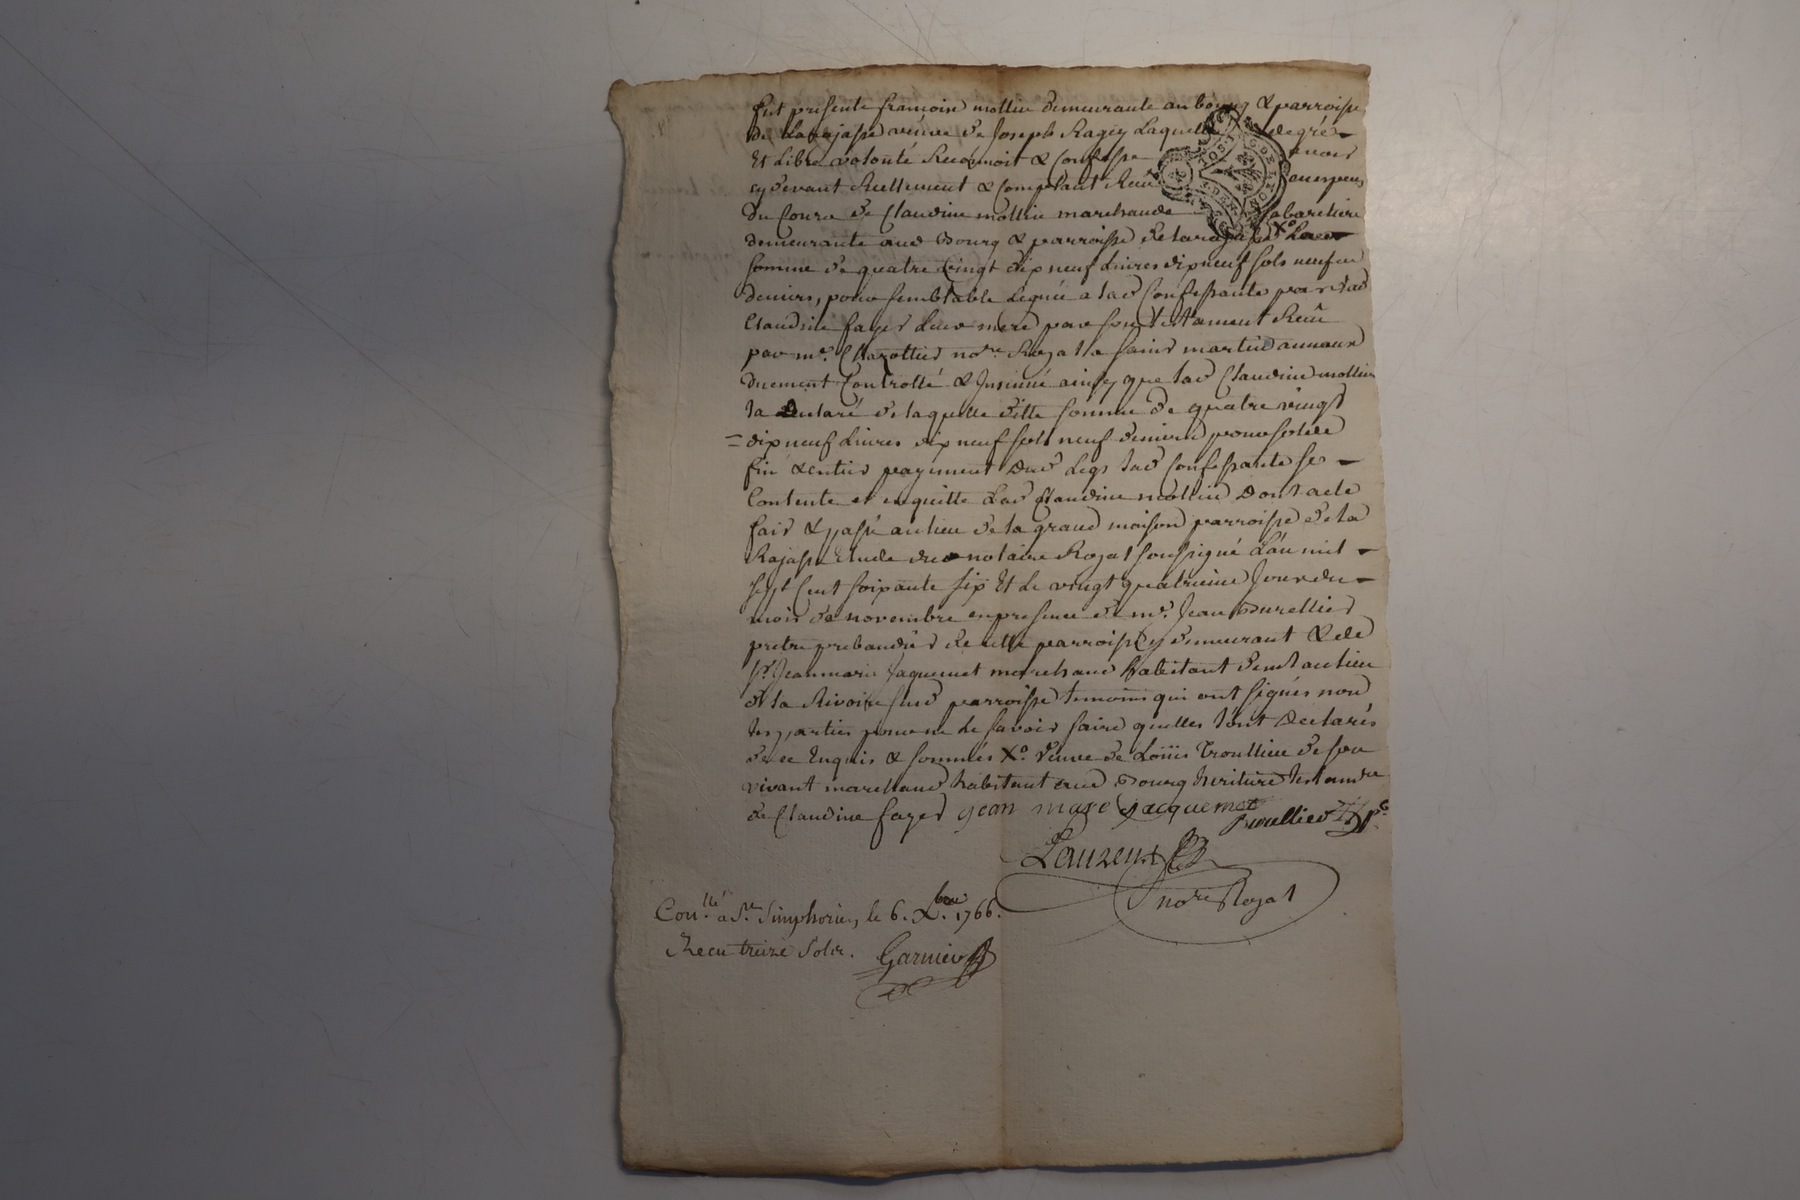 fut presente francoise mollin demeurante au bourg & parroisse
de Larajasse veuve de Joseph Ragey Laquelle de gré
Et Libre volonté Reconnoit & Confesse avoir
cy devant Reellement & Comptant Receu en especes
du Cours de Claudine mollin marchande Cabaretiere
demeurante aud Bourg & parroisse de larajasse Xo La
somme de quatre vingt dix neuf Livres dix neuf sols neuf
deniers, pour semblable Leguée a lad Confessante par lad
Claudine fayer Leur mere par son testament Receu
par me. Charottier nore. Royal a saint martin annaux
duement Controllé & Insinué ainsy que lad Claudine mollin
la declaré de laquelle ditte somme de quatre vingt
= dix neuf Livres dix neuf sols neuf deniers pour solde
fin & entier payement dud Legs lad Confessante se
Contente et en quitte Lad Claudine mollin Dont acte
fait & passé au lieu de la grand maison parroisse de la
Rajasse Etude du notaire Royal soussigné L'an mil
sept Cent soixante six Et le vingt quatrieme Jour du
mois de novembre en presence de me. Jean Burellier
pretre prebandier de cette parroisse y demeurant & de
sr. Jean marie Jaquemet marchand habitant aulieu
de la Rivoire sud parroisse temoins qui ont signés non
les parties pour ne le savoir faire quelles sont declarés
de ce Enquis & sommés Xo. veuve de Loüis Troullieu de son
vivant marchand habitant aud Bourg heritiere testamre
de Claudine fayer gean mare Jacquemet
Burellier
Laurent
nore Royal
Conllé a St. Simphorien le 6. Xbre. 1766.
Recu treize Sols. Garnier